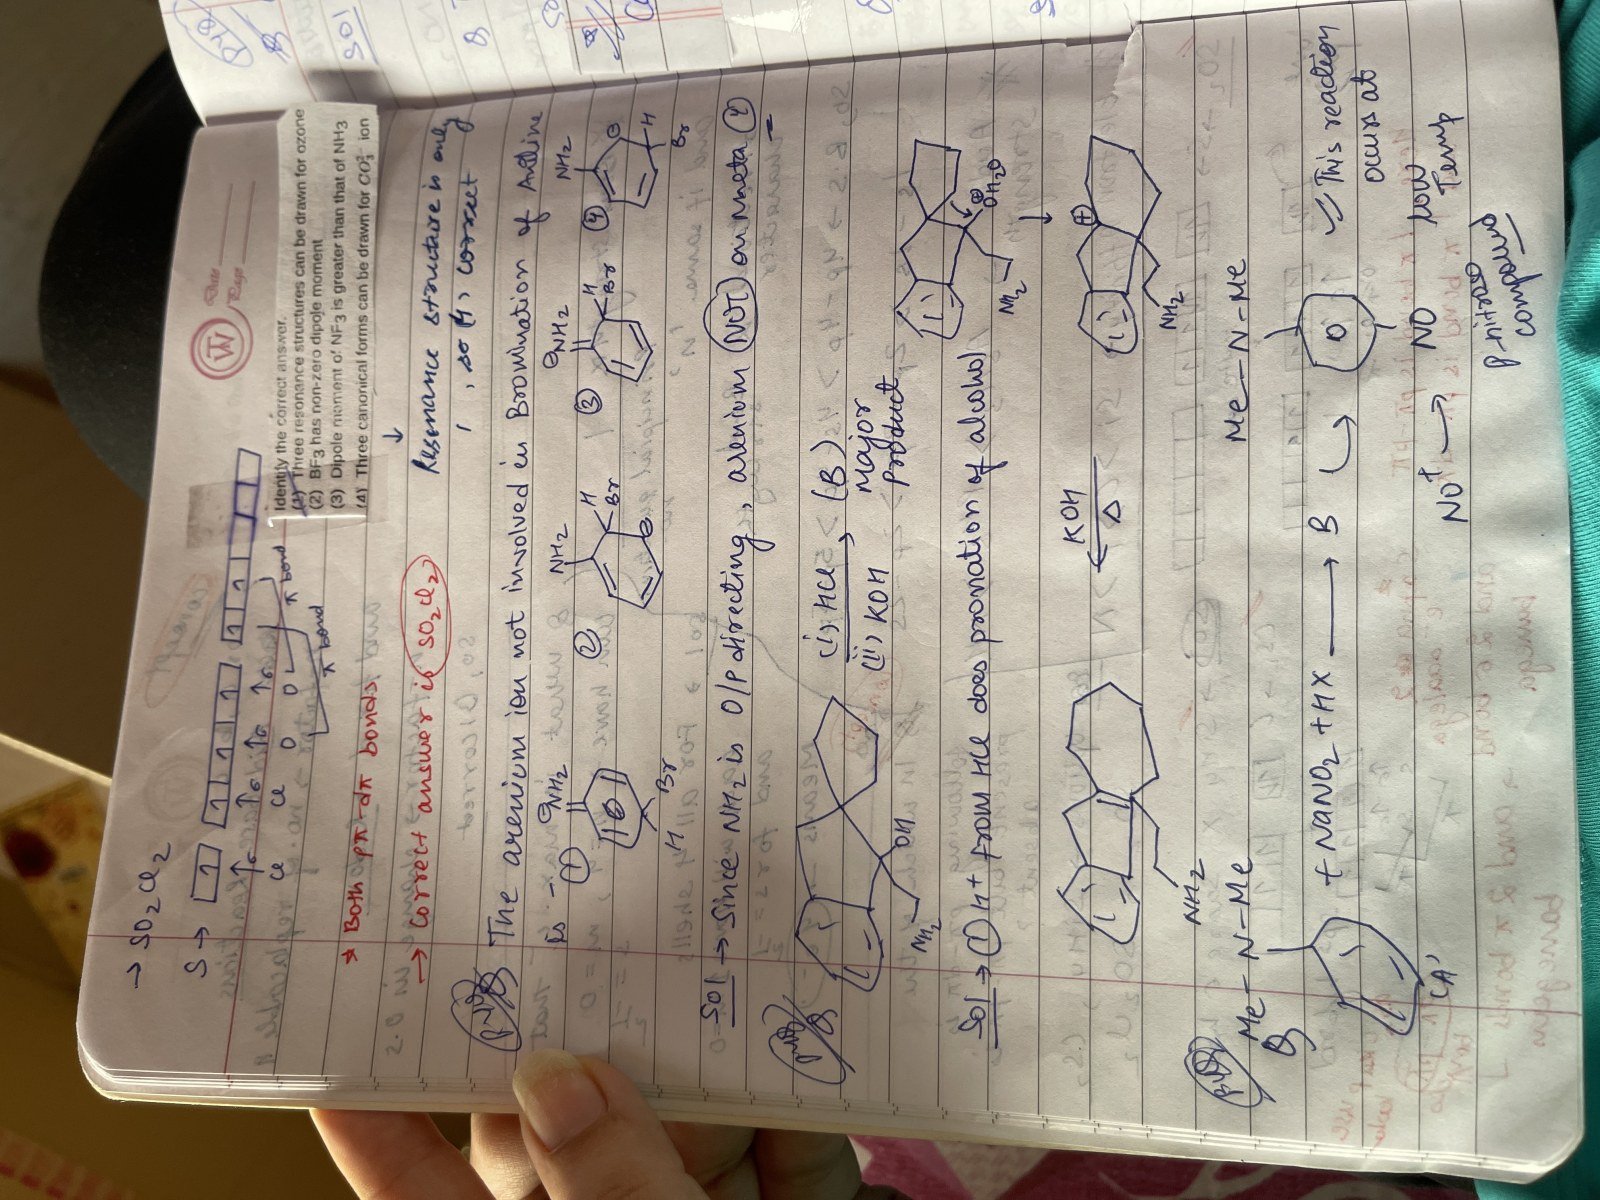 Date
Page
TW
→ SO2Cl2
S → 1 1 1 1 1 1 1
↑σ ↑σ ↑σ ↑σ
Cl Cl O O
π bond
π bond
Identify the correct answer.
(1) Three resonance structures can be drawn for ozone
(2) BF3 has non-zero dipole moment
(3) Dipole moment of NF3 is greater than that of NH3
(4) Three canonical forms can be drawn for CO3^2- ion
* Both pπ-dπ bonds.
→ Correct answer is SO2Cl2
↓
Resonance structure is only
1, so (4) correct
Q The arenium ion not involved in Bromination of Aniline
is -
① ⊕NH2 H Br
② NH2 H Br ⊕
③ ⊕NH2 H Br
④ NH2 ⊕ H Br
Sol → Since NH2 is O/P directing, arenium NOT on meta (4)
Q
NH2 OH
(i) HCl
(ii) KOH
→ (B)
Major
Product
Sol → ① H+ from HCl does pronation of alcohol
NH2 ⊕OH2
↓
NH2 KOH
Δ
NH2 ⊕
Q Me-N-Me + NaNO2 + HX → B
(A)
Me-N-Me
NO
⇒ This reaction
occurs at
low
Temp
NO+ → NO
p-nitroso
compound